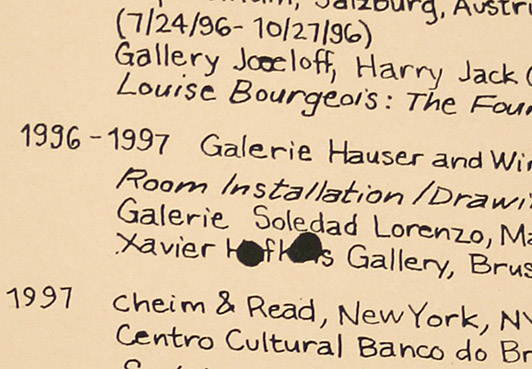 Salzburg, Austri
(7/24/96-10/27/96)
Gallery Joseloff, Harry Jack (
Louise Bourgeois: The Four
1996-1997 Galerie Hauser and Wir
Room Installation/Drawi
Galerie Soledad Lorenzo, Ma
Xavier Gallery, Brus
1997 Cheim & Read, New York, NY
Centro Cultural Banco do Br